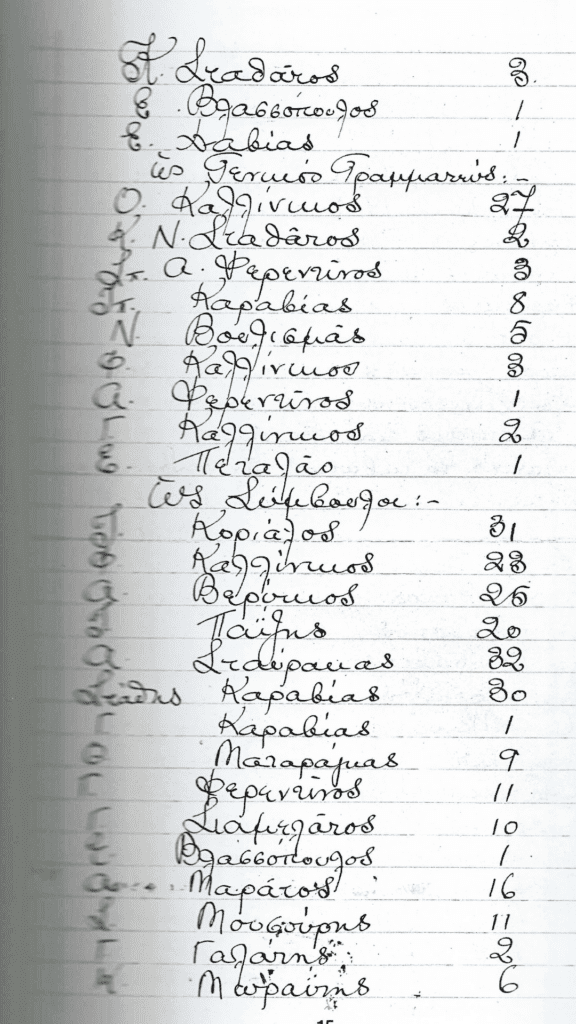 Κ. Σταθάτος 3.
Ε. Βλασσόπουλος 1
Ε. Δαβίας 1
ὡς Γενικός Γραμματεύς:-
Ο. Καλλίνικος 27
Κ. Ν. Σταθάτος 2
Σπ. Α. Φερεντίνος 3
Σπ. Καραβίας 8
Ν. Βουλισμᾶς 5
Φ. Καλλίνικος 3
Α. Φερεντίνος 1
Γ Καλλίνικος 2
Ε. Πεταλᾶς 1
ὡς Σύμβουλοι:-
Κοριάλος 31
Καλλίνικος 23
Α. Βερύκιος 26
Παΐζης 20
Α Σταύρακας 32
Στάθης Καραβίας 30
Γ Καραβίας 1
Ο Ματαράγκας 9
Γ Φερεντίνος 11
Γ Σιαμελάτος 10
Βλασσόπουλος 1
Μαράτος 16
Μουσούρης 11
Γ Γαλάτης 2
Κ. Μωραΐτης 6
15